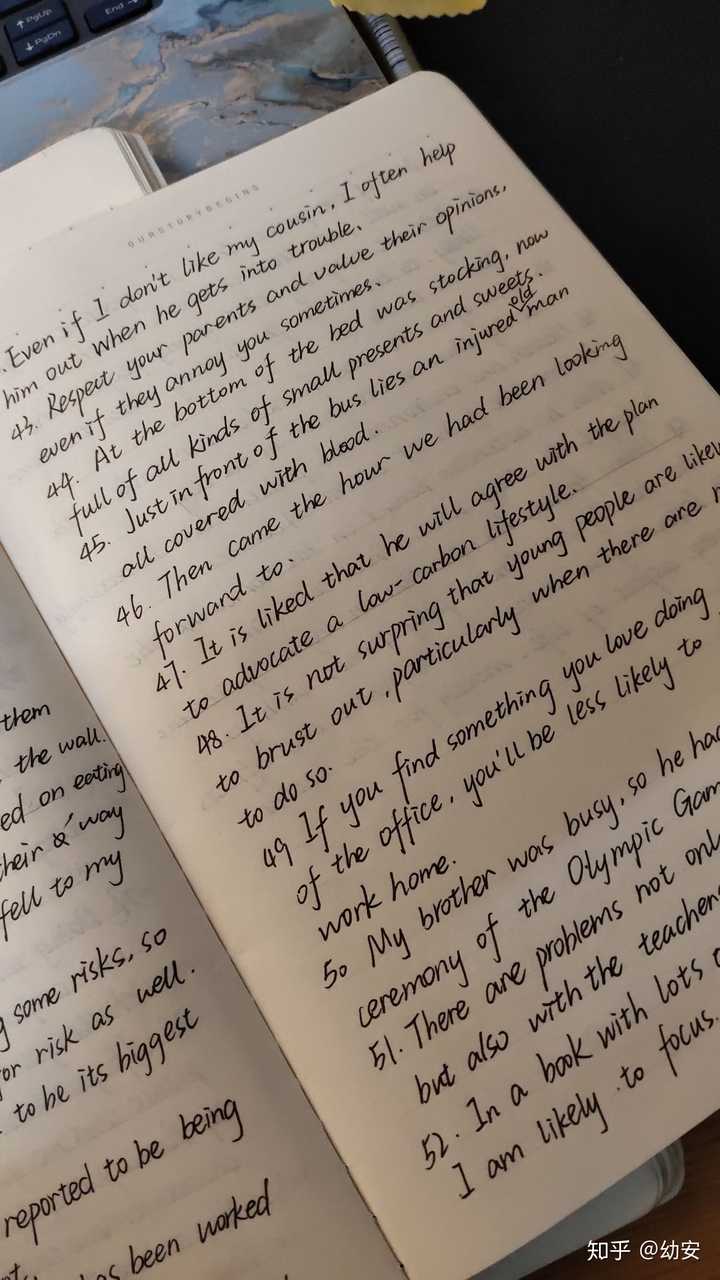 PgUp
End
PgDn
OURSTORYBEGING
. Even if I don't like my cousin, I often help
him out when he gets into trouble.
43. Respect your parents and value their opinions,
even if they annoy you sometimes.
44. At the bottom of the bed was stocking, now
full of all kinds of small presents and sweets.
45. Just in front of the bus lies an injured old man
all covered with blood.
46. Then came the hour we had been looking
forward to.
47. It is liked that he will agree with the plan
to advocate a low-carbon lifestyle.
48. It is not surpring that young people are
to brust out, particularly when there are
to do so.
49 If you find something you love doing
of the office, you'll be less likely to
work home.
50 My brother was busy, so he had
ceremony of the Olympic
51. There are problems not only
but also with the teachers
52. In a book with lots
I am likely to focus.
them
the wall.
ed on eating
their way
fell to my
some risks, so
or risk as well.
to be its biggest
reported to be being
been worked
知乎 @幼安